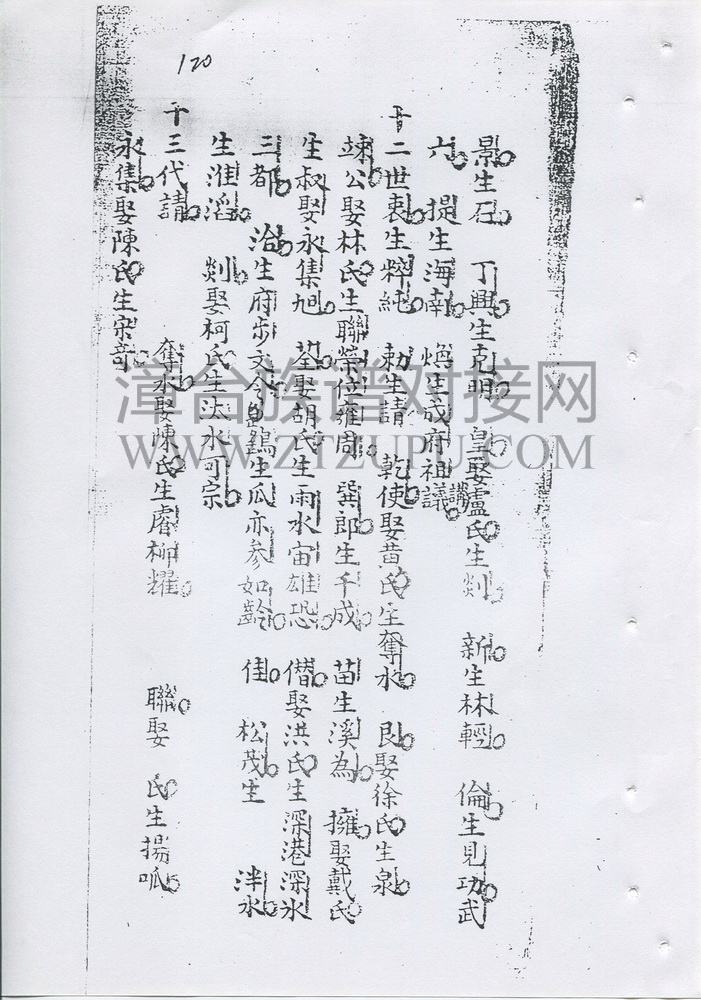 120
景生石 丁興生克明 皇娶盧氏生剡 新生林輕 倫生見功武
六 提生海南 煥生成府祖議講
十二世衷生粹純 勅生請 乾使娶黃氏生奪水 良娶徐氏生泉
竦公娶林氏生聯榮位雍周 巽郎生千成 苗生溪為 擁娶戴氏
生叔娶永集旭 荃娶胡氏生雨水宙雄恐 僭娶洪氏生深港深水
三都 治生府步文令 鶴生瓜亦參如齡 佳 松茂生 泮水
生淮滔 剡娶柯氏生汰水可宗
十三代請 奪水娶陳氏生睿柳耀 聯娶 氏生揚呱
永集娶陳氏生宋奇
漳台族谱对接网
WWW.ZTZUPU.COM